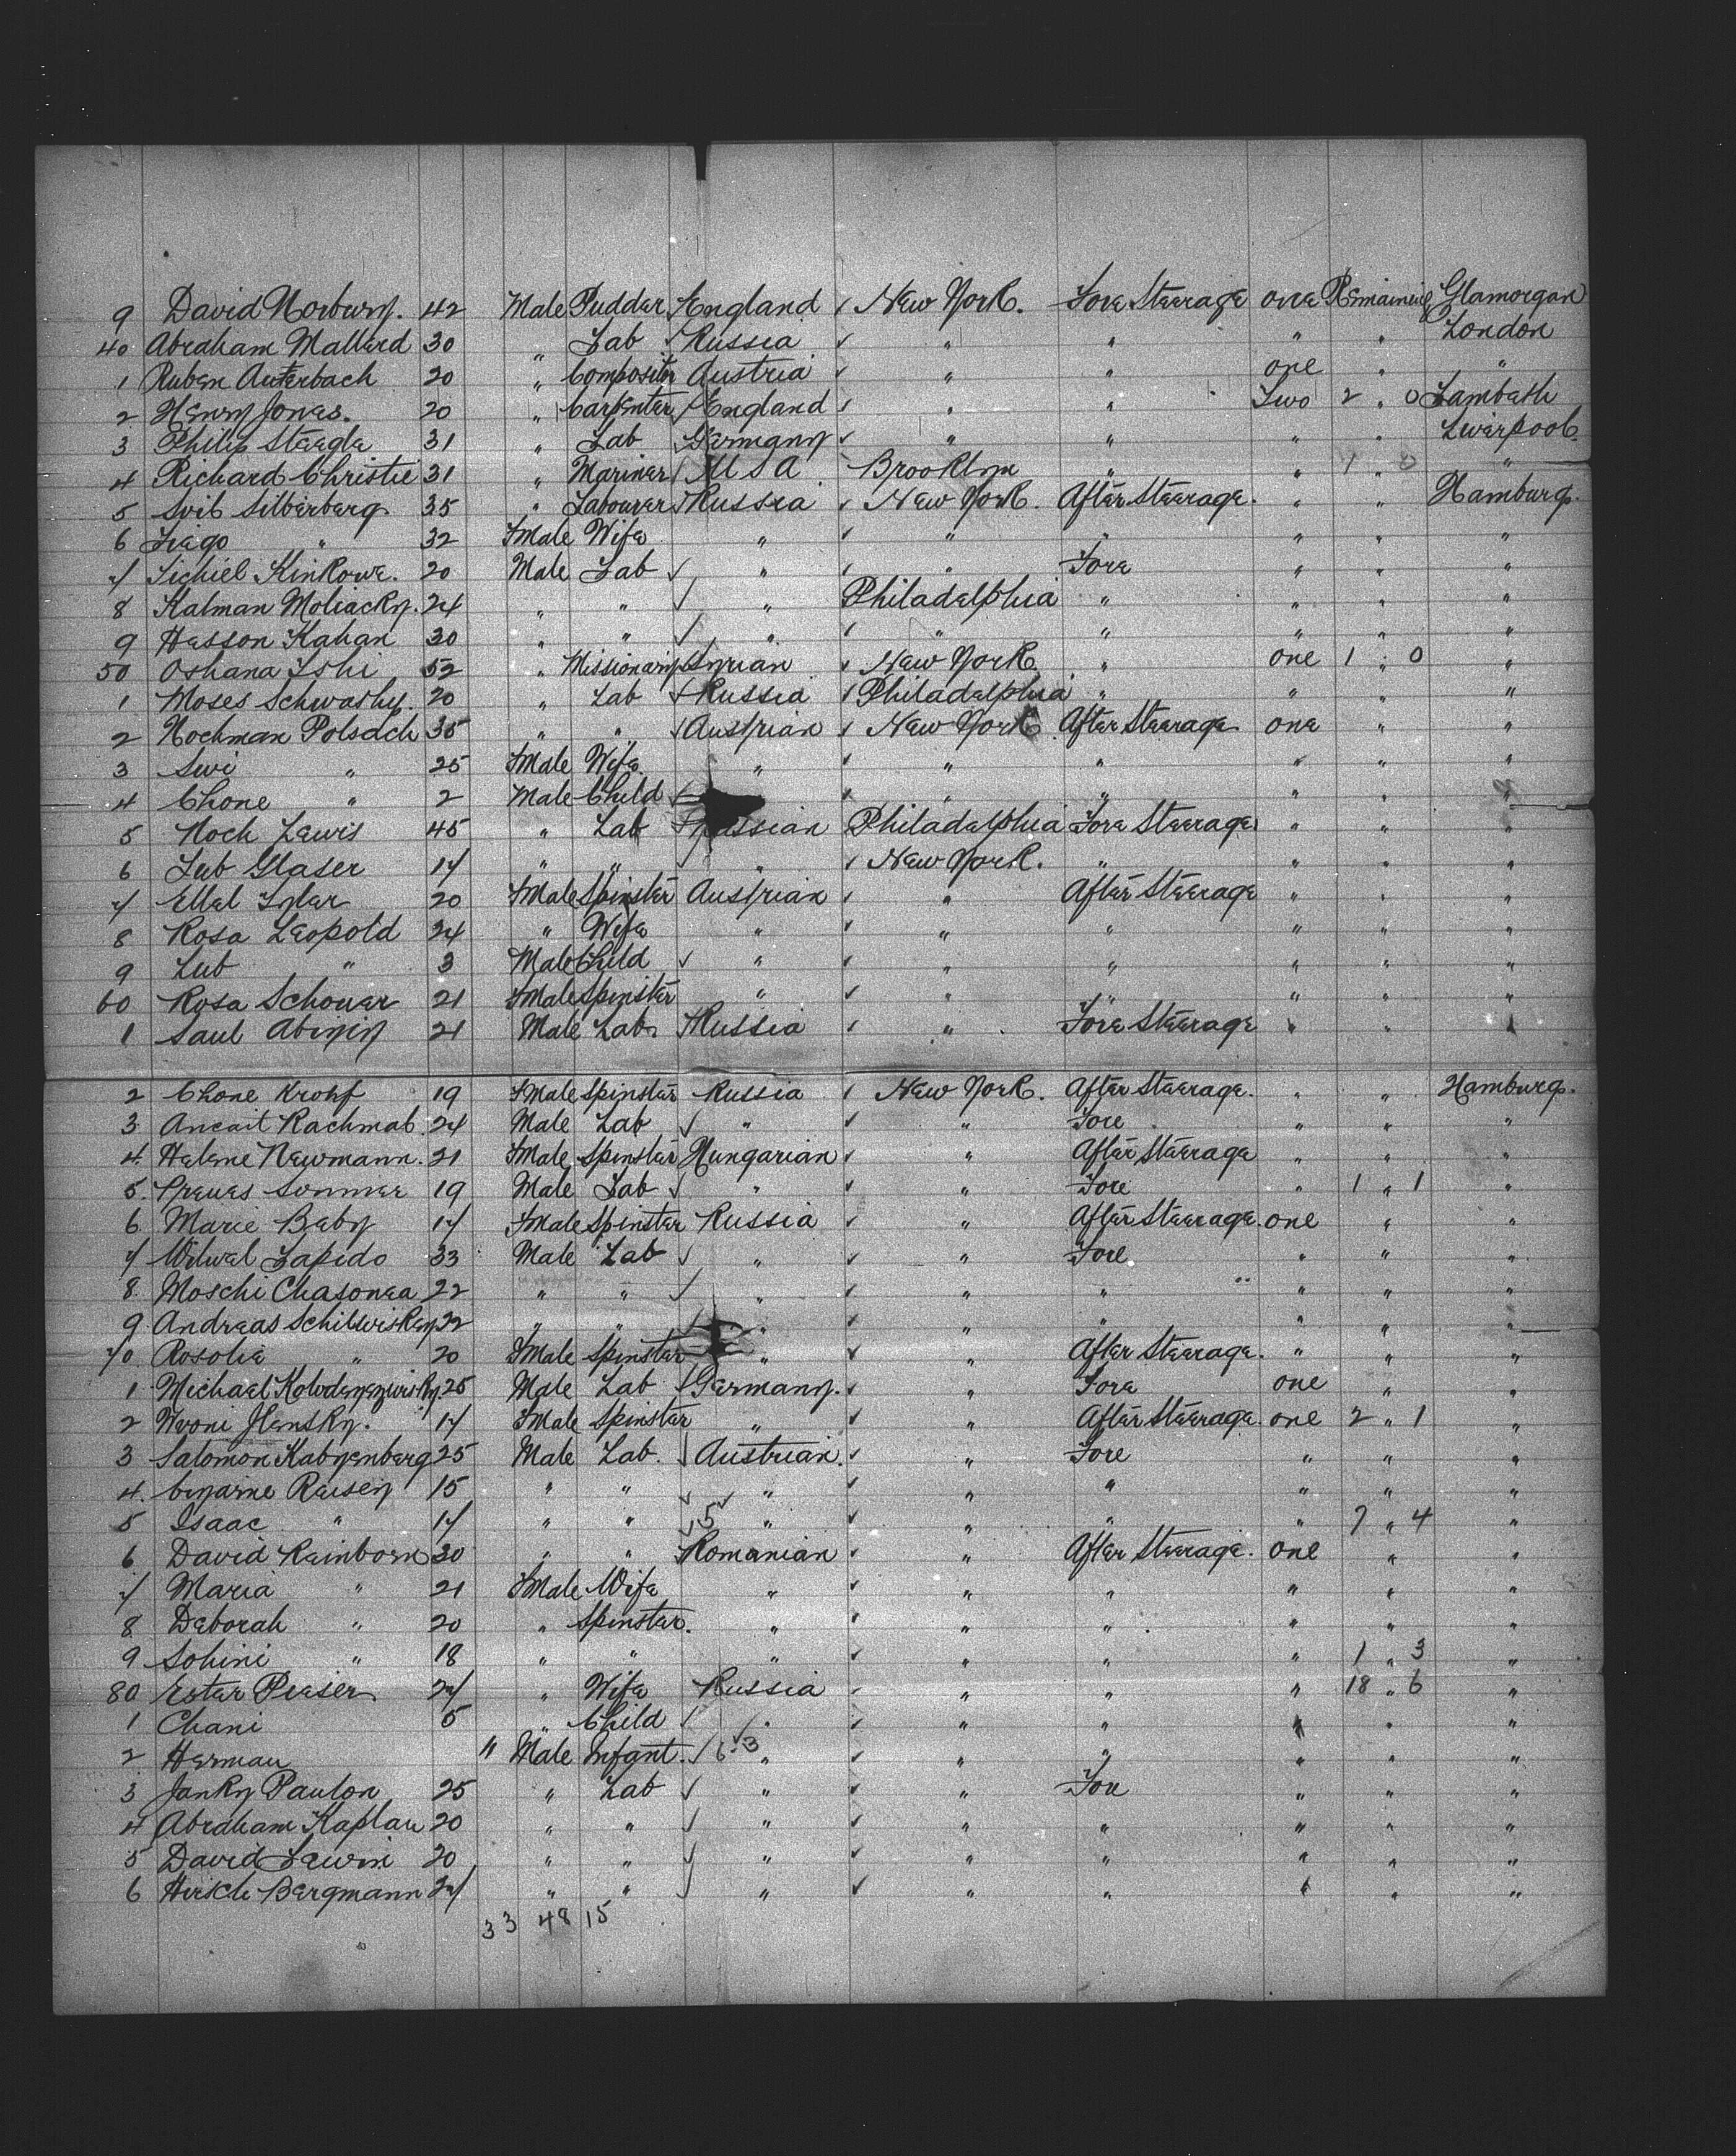 9 David Norbury. 42 Male Puddar England New York. Fore Steerage one Remaining Glamorgan
40 Abraham Mallerd 30 " Lab Russia " " " " London
1 Ruben Auterbach 20 " Compositor Austria " " one " "
2 Henry Jones. 20 " Carpenter England " " Two 2 " 0 Lambeth
3 Philip Steegle 31 " Lab Germany " " " " Liverpool.
4 Richard Christie 31 " Mariner U S A Brooklyn " " 1 " 0 "
5 Svib Silberberg 35 " Labourer Russia New York. After Steerage. " " Hamburg.
6 " 32 Fmale Wife " " " " " "
7 Kinkowe. 20 Male Lab " " Fore " " "
8 Kalman Moliacky. 24 " " " Philadelphia " " " "
9 Hesson Kahan 30 " " " " " " " "
50 Oshana Ishi 52 " Missionary Syrian New York " one 1 " 0 "
1 Moses Schwashy. 20 " Lab Russia Philadelphia " " " "
2 Nochman Polsach 35 " " Austrian New York After Steerage one " "
3 Swi " 25 Fmale Wife " " " " " "
4 Chone " 2 Male Child " " " " "
5 Noch Lewis 45 " Lab Russian Philadelphia Fore Steerage " " "
6 Lub Glaser 17 " " " New York. " " " "
7 Ettel 20 Fmale Spinster Austrian " After Steerage " " "
8 Rosa Leopold 24 " Wife " " " " " "
9 Lub " 3 Male Child " " " " " "
60 Rosa Schouer 21 Fmale Spinster " " " " " "
1 Saul 21 Male Lab. Russia " Fore Steerage " " "
2 Chone Krohf 19 Fmale Spinster Russia New York. After Steerage. " " Hamburg.
3 Ancait Rachmab. 24 Male Lab " " Fore " " "
4. Helene Newmann. 21 Fmale Spinster Hungarian " After Steerage " " "
5. Sommer 19 Male Lab " " Fore " 1 " 1 "
6. Marie Baby 17 Fmale Spinster Russia " After Steerage. one " "
7 Lapido 33 Male Lab " " Fore " " "
8. Moschi Chasonea 22 " " " " " " " "
9 Andreas 22 " " " " " " " "
70 Rosolie " 20 Fmale Spinster " " After Steerage. " " "
1 Michael 25 Male Lab Germany. " Fore one " "
2 17 Fmale Spinster " " After Steerage. one 2 " 1 "
3 Salomon Kabyenberg 25 Male Lab. Austrian. " Fore " " "
4. Raisen 15 " " " " " " " "
5 Isaac " 17 " " 5 " " " " 7 " 4 "
6 David Reinborn 30 " " Romanian " After Steerage. one " "
7 Maria " 21 Fmale Wife " " " " " "
8 Deborah " 20 " Spinster. " " " " " "
9 Sohini " 18 " " " " " " 1 " 3 "
80 Ester Peaser 27 " Wife Russia " " " 18 " 6 "
1 Chani 5 " Child " " " " " "
2 Herman 11 Male Infant. 6 3 " " " " " "
3 Janky Paulon 25 " Lab " " Fore " " "
4 Abraham Kaplan 20 " " " " " " " "
5 David Lewin 20 " " " " " " " "
6 Hirsch Bergmann 27 " " " " " " " "
33 48 15